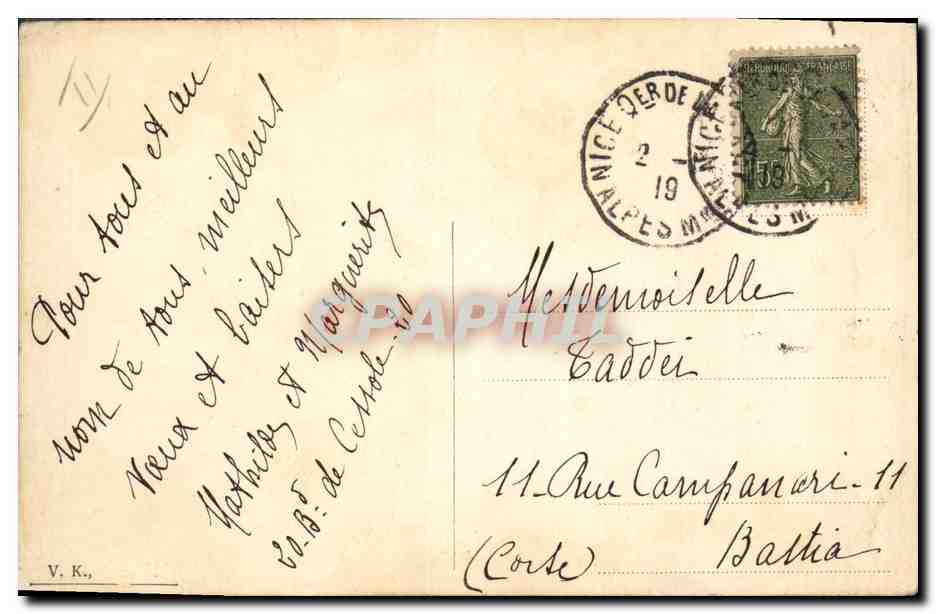 II
Pour tous et au
nom de tous, meilleurs
vœux et baisers
Mathilde et Marguerite
20. Bd. de Cessole. 20
V. K.,
NICE QER DE LA
2 -
19
ALPES Mmes
NICE
19
ALPES M
REPUBLIQUE FRANÇAISE
15
Mesdemoiselle
Taddei
11 - Rue Campanari - 11
Bastia
(Corse)
CPAPHIL